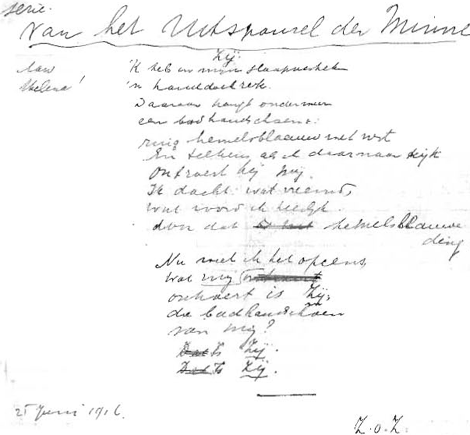 serie.
Van het Uitspansel der Minne
Zij.
Aan 'K heb in mijn slaapvertrek
Helena! 'n handdoekrek.
Daaraan hangt ondermeer
een badhandschoen:
ruig hemelsblaauw met
En telkens als ik daarnaar kijk
ontroert hij mij.
Ik dacht: wat vreemd,
wat word ik
door dat hemelsblauwe
ding
Nu weet ik het opeens
wat mij
ontroert is Zij,
die badhandschoen
van mij?
Dat Is Zij.
Dat Is Zij.
Juni 1916.
Z.o.Z.